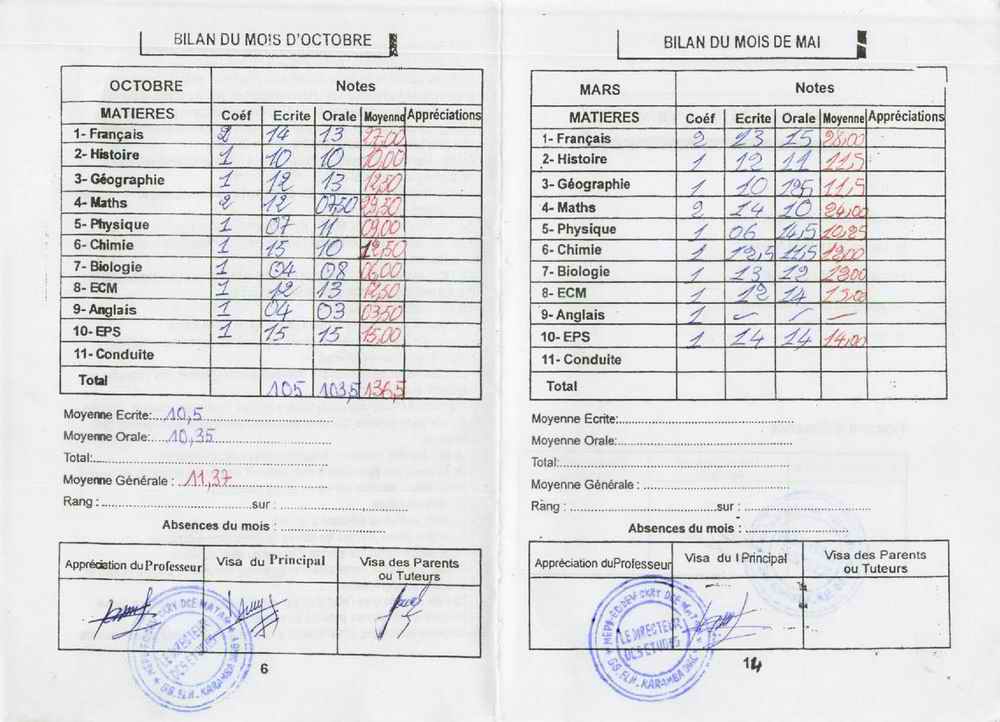 BILAN DU MOIS D'OCTOBRE
OCTOBRE Notes
MATIERES Coéf Ecrite Orale Moyenne Appréciations
1- Français 2 14 13 27,00
2- Histoire 1 10 10 10,00
3- Géographie 1 12 13 12,50
4- Maths 2 12 07,50
5- Physique 1 07 11 09,00
6- Chimie 1 15 10 12,50
7- Biologie 1 04 08 06,00
8- ECM 1 12 13 12,50
9- Anglais 1 04 03 03,50
10- EPS 1 15 15 15,00
11- Conduite
Total 105 103,5 136,5
Moyenne Ecrite: 10,5
Moyenne Orale: 10,35
Total:
Moyenne Générale : 11,37
Rang : sur :
Absences du mois :
Appréciation du Professeur Visa du Principal Visa des Parents
ou Tuteurs
LE DIRECTEUR
DES ETUDES
6
BILAN DU MOIS DE MAI
MARS Notes
MATIERES Coéf Ecrite Orale Moyenne Appréciations
1- Français 2 13 15 28,00
2- Histoire 1 12 11 11,5
3- Géographie 1 10 12,5 11,5
4- Maths 2 14 10 24,00
5- Physique 1 06 14,5 10,25
6- Chimie 1 12,5 11,5 12,00
7- Biologie 1 13 12
8- ECM 1 12 14 13,00
9- Anglais 1
10- EPS 1 14 14 14,00
11- Conduite
Total
Moyenne Ecrite:
Moyenne Orale:
Total:
Moyenne Générale :
Rang : sur :
Absences du mois :
Appréciation du Professeur Visa du Principal Visa des Parents
ou Tuteurs
LE DIRECTEUR
DES ETUDES
14